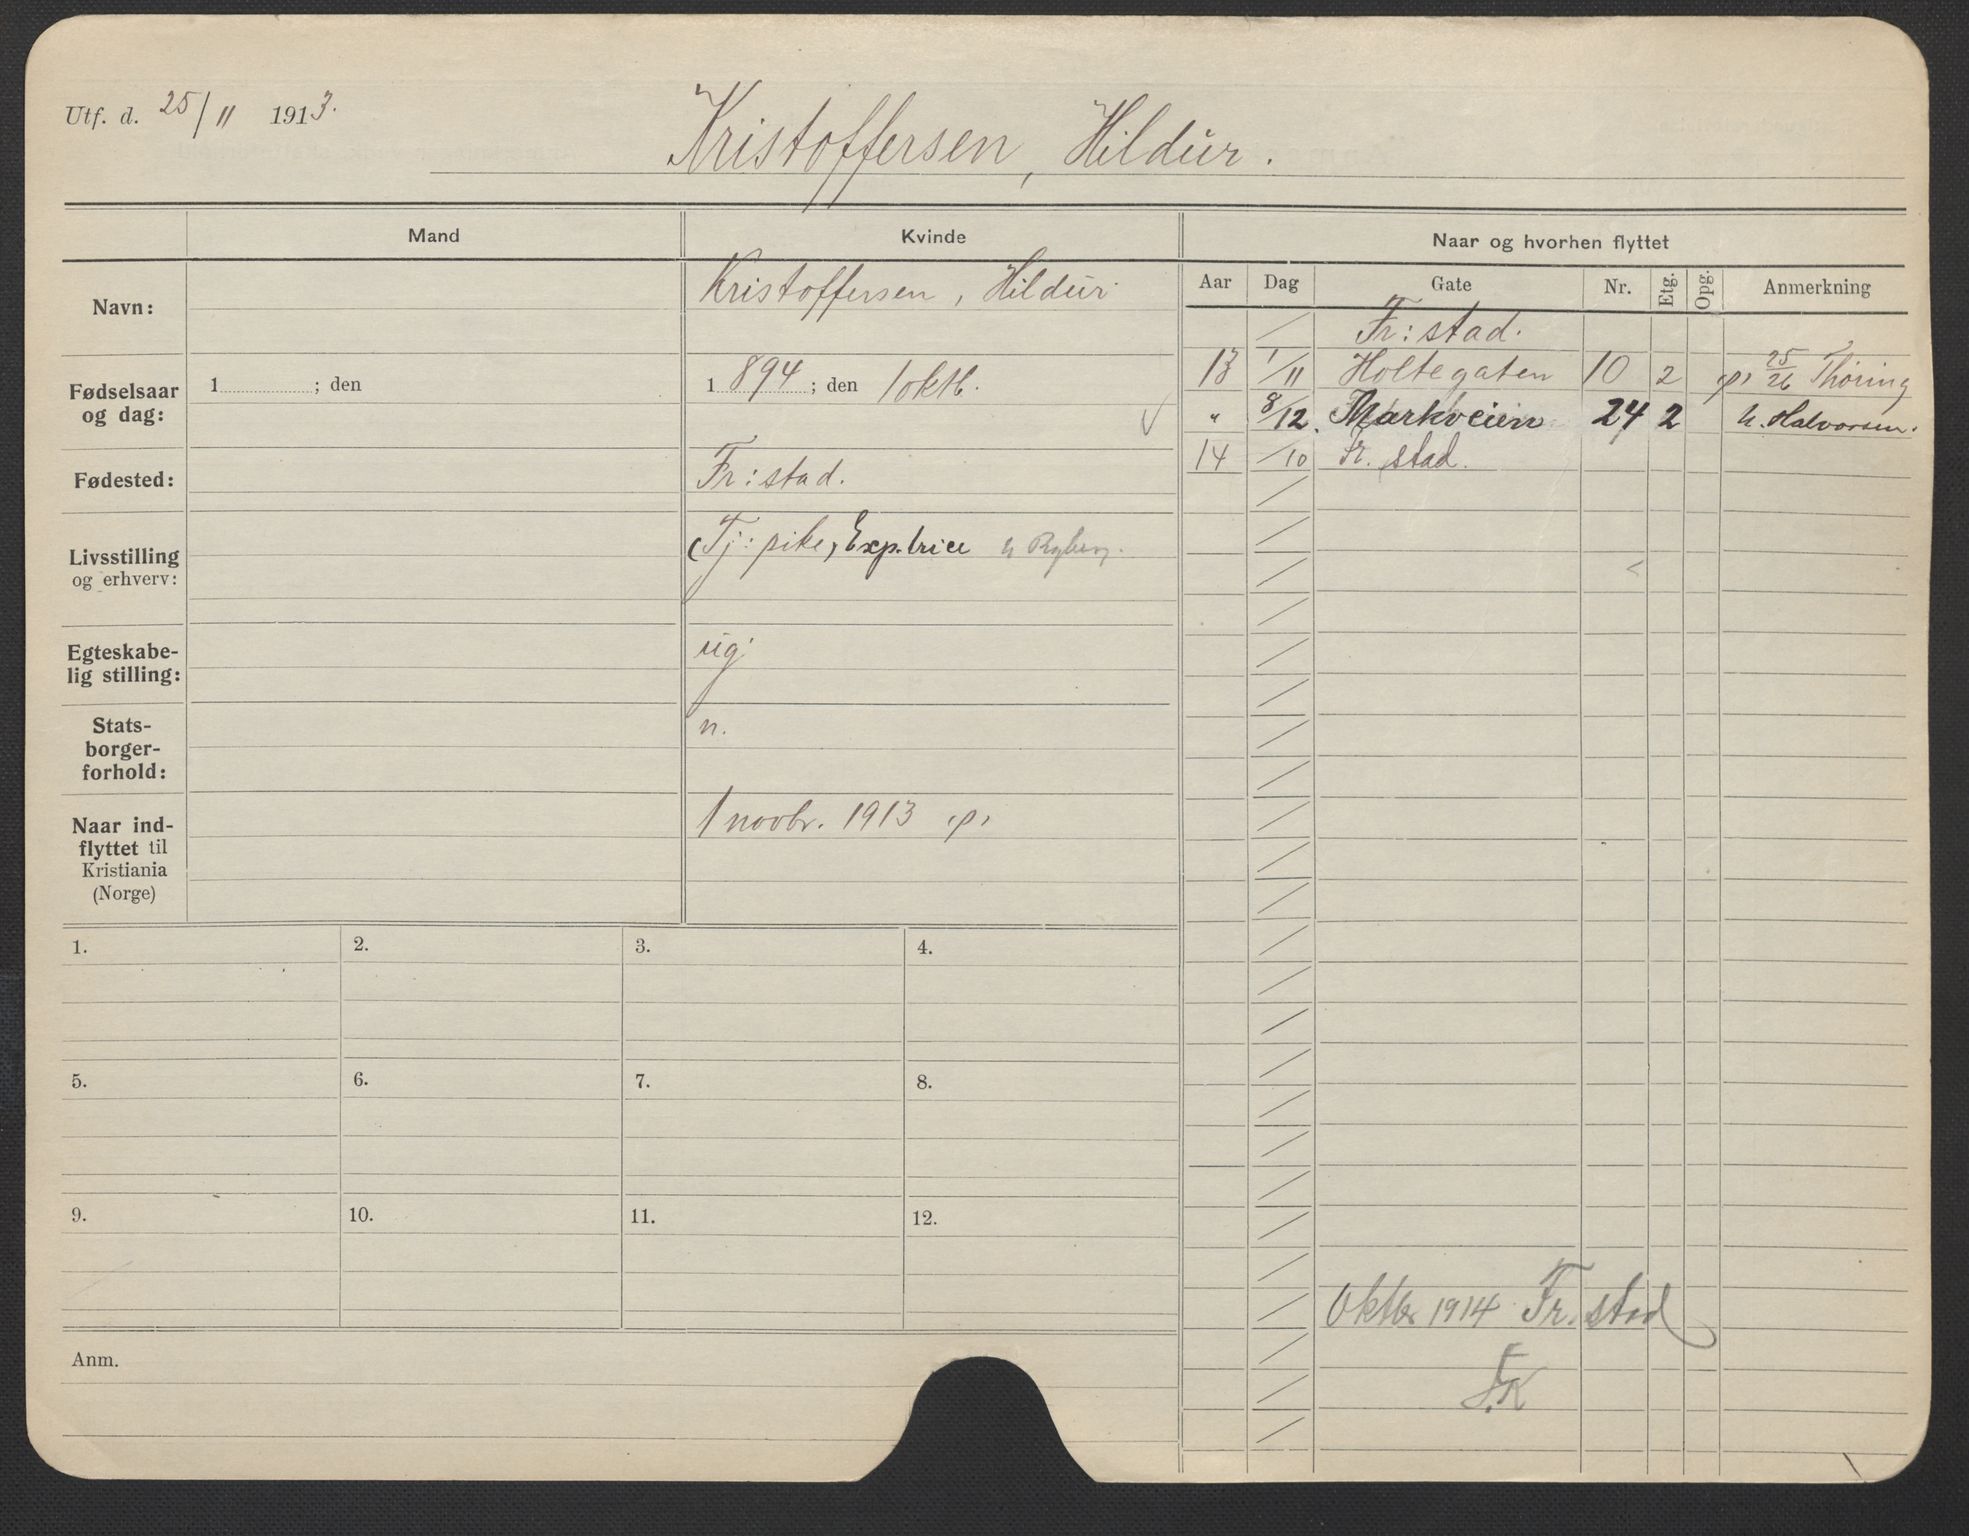 Utf. d. 25/11 1913.
Kristoffersen, Hildur.
Mand
Kvinde
Naar og hvorhen flyttet
Aar Dag Gate Nr. Etg. Opg. Anmerkning
Navn:
Kristoffersen, Hildur
Fødselsaar
og dag:
1 ; den
1 894 ; den 1 oktb.
Fødested:
Fr:stad.
Livsstilling
og erhverv:
(Tj: pike, Exp.trice
Egteskabe-
lig stilling:
ug
Stats-
borger-
forhold:
n.
Naar ind-
flyttet til
Kristiania
(Norge)
1 novbr. 1913 p,
/ Fr:stad.
13 1/11 Holtegaten 10 2 p, 25/26 Thoring
" 8/12. Markveien 24 2 h. Halvorsen.
14 /10 Fr. stad.
1.
2.
3.
4.
5.
6.
7.
8.
9.
10.
11.
12.
Oktbr 1914 Fr. stad
Anm.